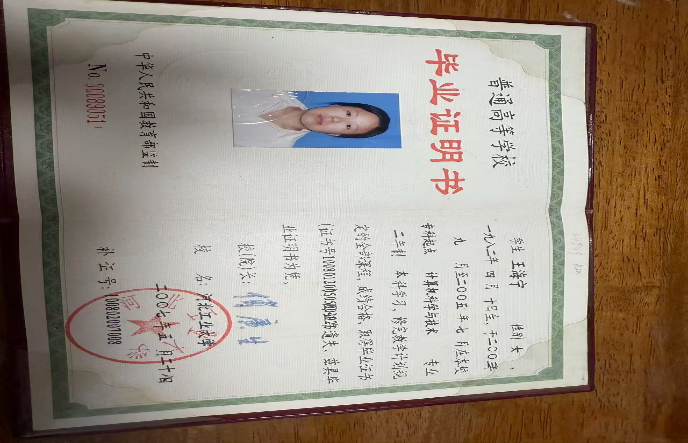 普通高等学校
毕业证明书
中华人民共和国教育部监制
No. 00089151
学生 王海宁 性别 女 ,
一九八二年 四 月 十 日生,于二〇〇三年
九 月至二〇〇五 年 七 月在本校
专科起点 计算机科学与技术 专业
二年制 本科学习,修完教学计划规
定的全部课程,成绩合格,颁发毕业证书
遗失,兹具毕
业证明书为凭。
校(院)长:
校 名:河北工业大学
二〇〇七 年 五 月 三十 日
补 证 号: